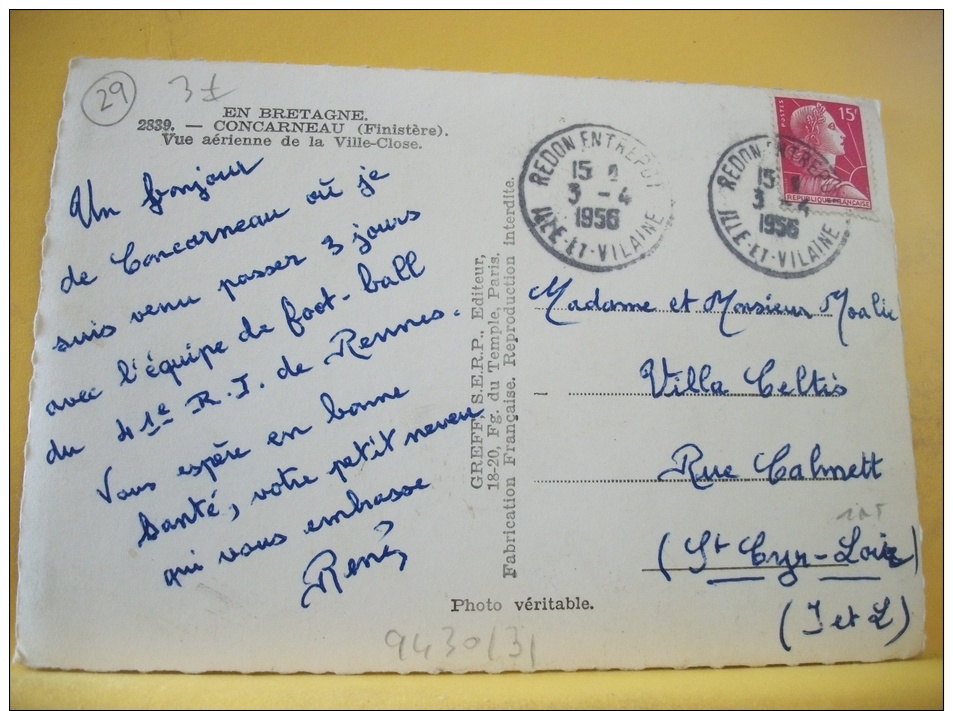 29
EN BRETAGNE.
2839. — CONCARNEAU (Finistère).
Vue aérienne de la Ville-Close.
Un bonjour
de Concarneau où je
suis venu passer 3 jours
avec l'équipe de foot-ball
du 41e R. I. de Rennes.
Vous espère en bonne
Santé, votre petit neveu
qui vous embrasse
René
GREFF, S.E.R.P., Editeur,
18-20, Fg. du Temple, Paris.
Fabrication Française. Reproduction interdite.
Photo véritable.
9430/31
REDON ENTREPOT
15
3 - 4
1956
ILLE-ET-VILAINE
REDON ENTREPOT
15
3 - 4
1956
ILLE-ET-VILAINE
POSTES
15F
REPUBLIQUE FRANÇAISE
Madame et Monsieur Moalic
Villa Celtis
Rue Calmett
(St Cyr-Loire)
(I et L)